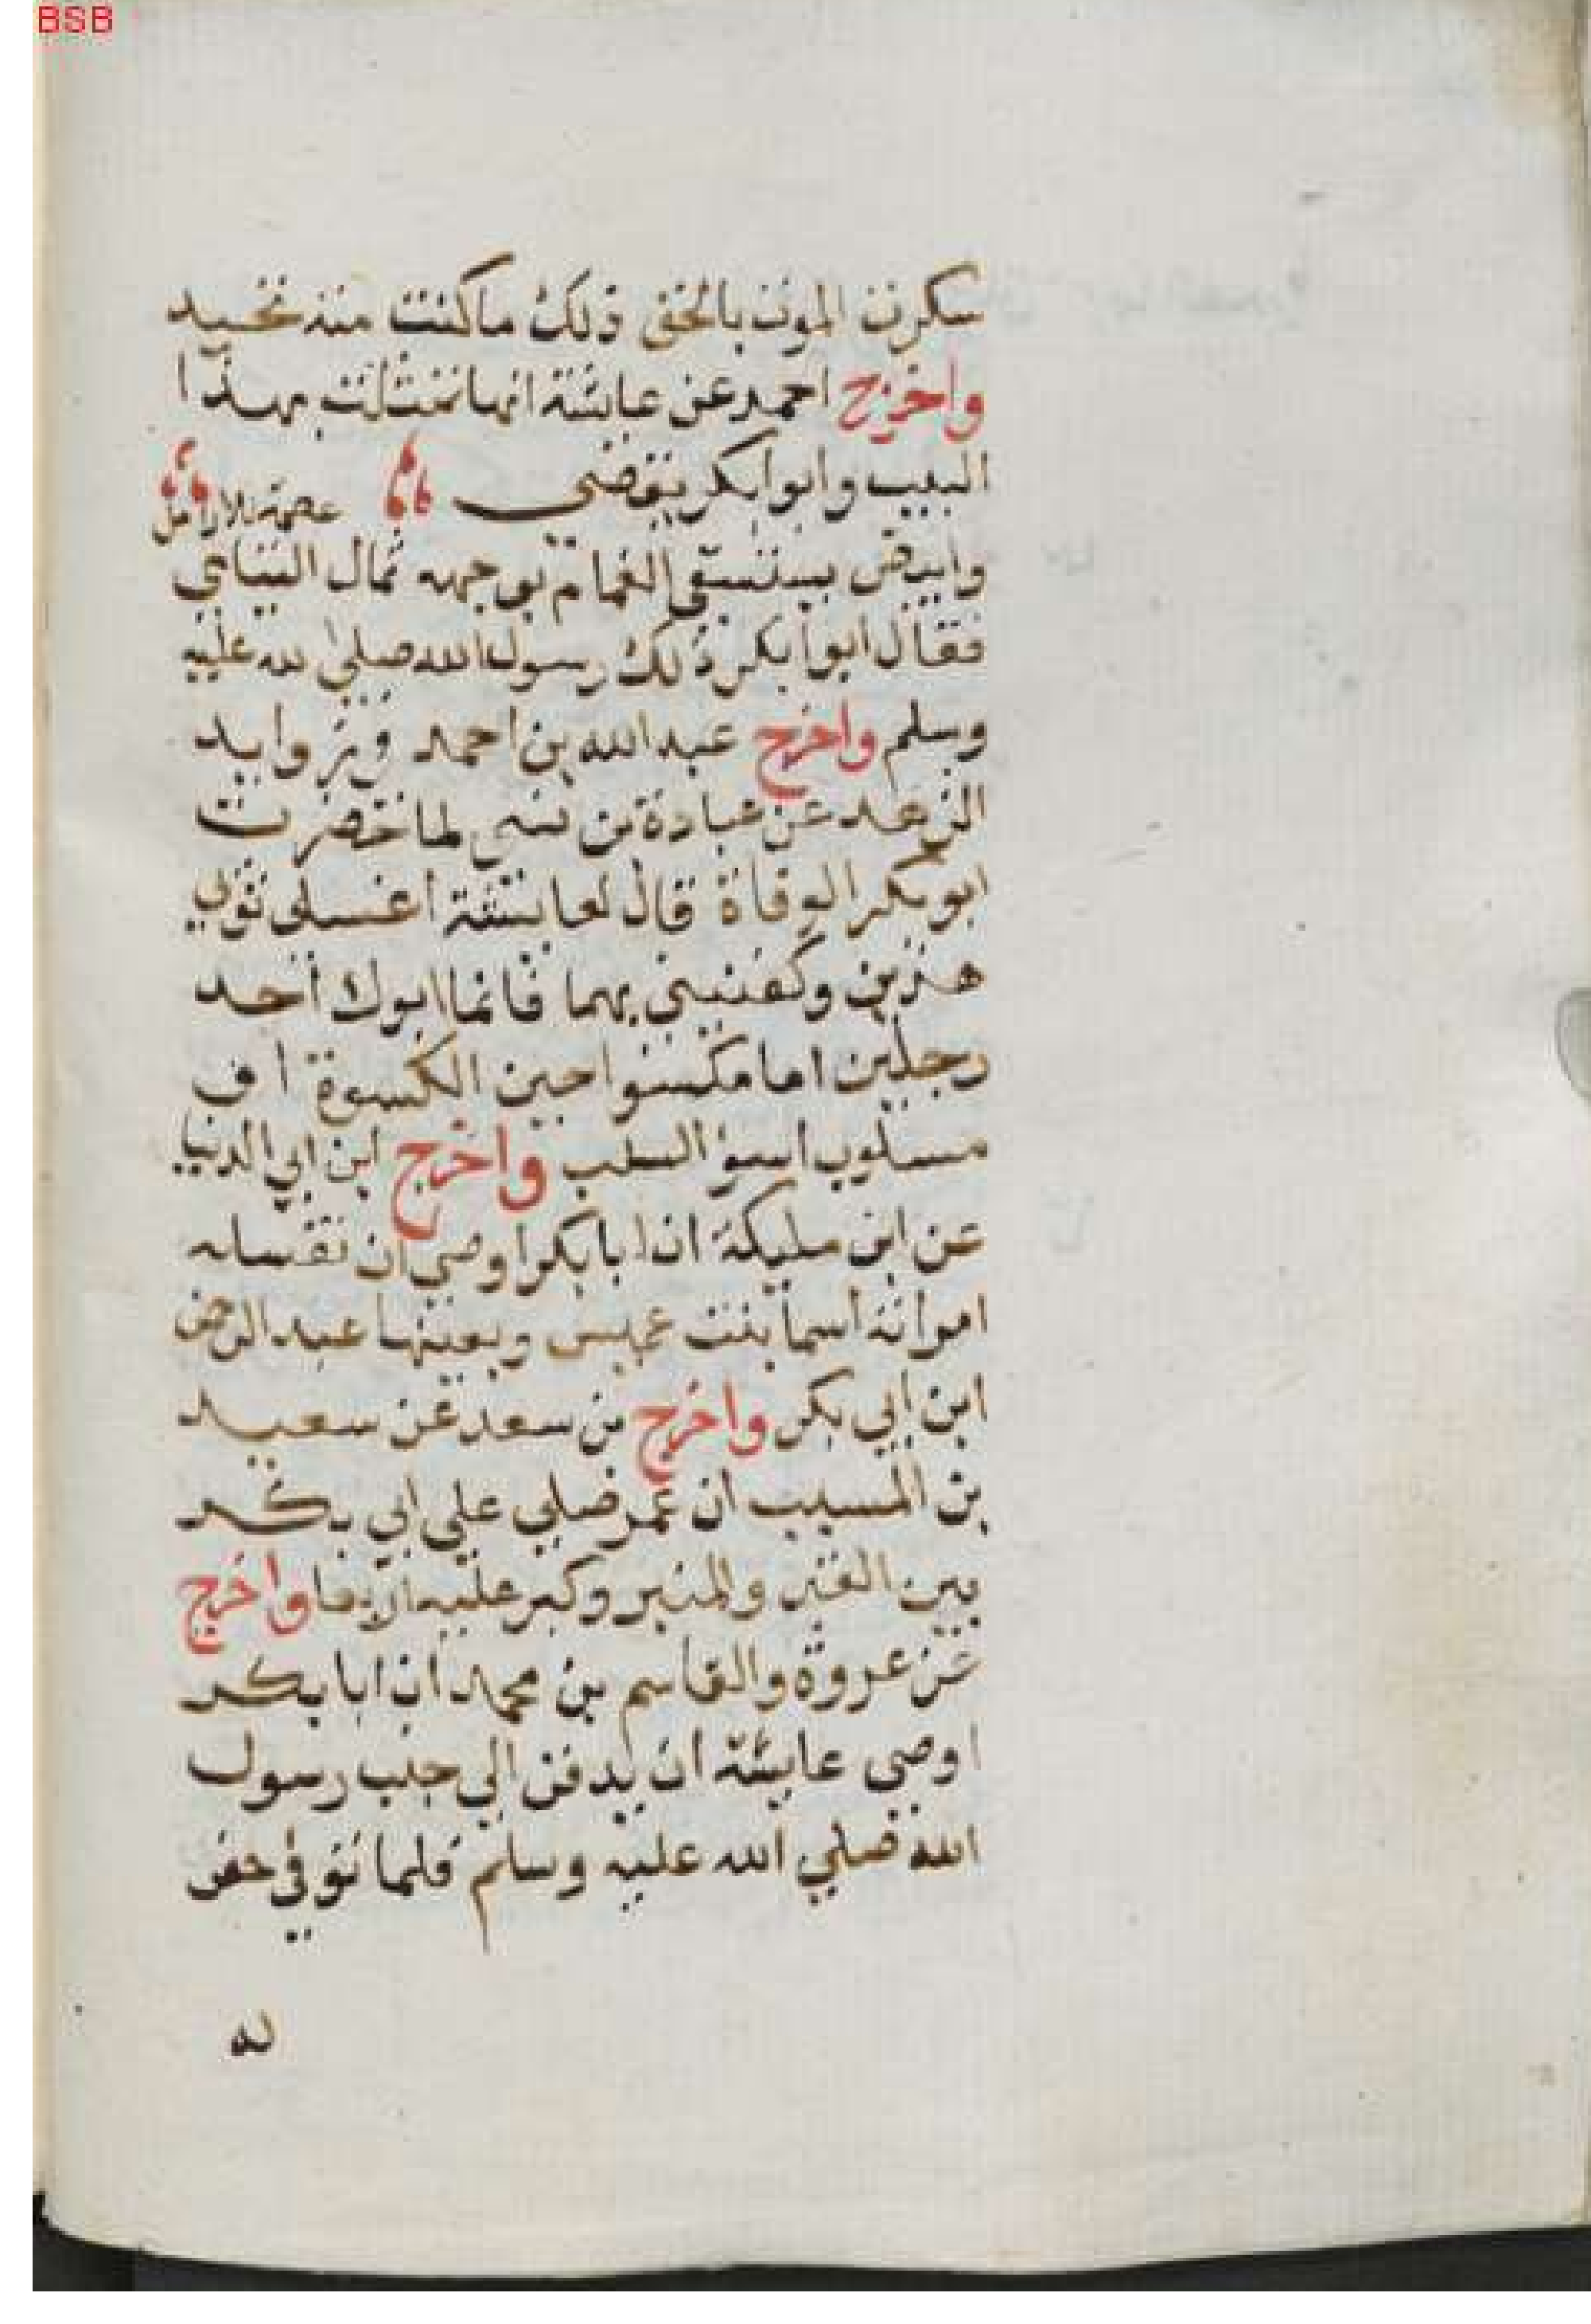 BSB
سكرت الموت بالحق ذلك ما كنت منه تحيد
واخرج احمد عن عايشة انها تمثلت بهذا
البيت وابوا بكر يقضي
عصمة للارامل
وابيض يستسقي الغمام بوجهه ثمال اليتامي
فقال ابوا بكر ذلك رسول الله صلي الله عليه
وسلم واخرج عبد الله بن احمد في زوايد
الزهد عن عبادة بن نسي لما حضرت
ابو بكر الوفاة قال لعايشة اغسلي ثوبي
هذين وكفنيني بهما فانما ابوك احد
رجلين اما مكسوا حين الكسوة او
مسلوب اسوا السلب واخرج ابن ابي الدنيا
عن ابن مليكة ان ابا بكر اوصي ان تغسله
امراته اسما بنت عميس ويعينها عبد الرحمن
ابن ابي بكر واخرج بن سعد عن سعيد
بن المسيب ان عمر صلي علي ابي بكر
بين القبر والمنبر وكبر عليه اربعا واخرج
عن عروة والقاسم بن محمد ان ابا بكر
اوصي عايشة ان يدفن الي جنب رسول
الله صلي الله عليه وسلم فلما توفي حفر
له